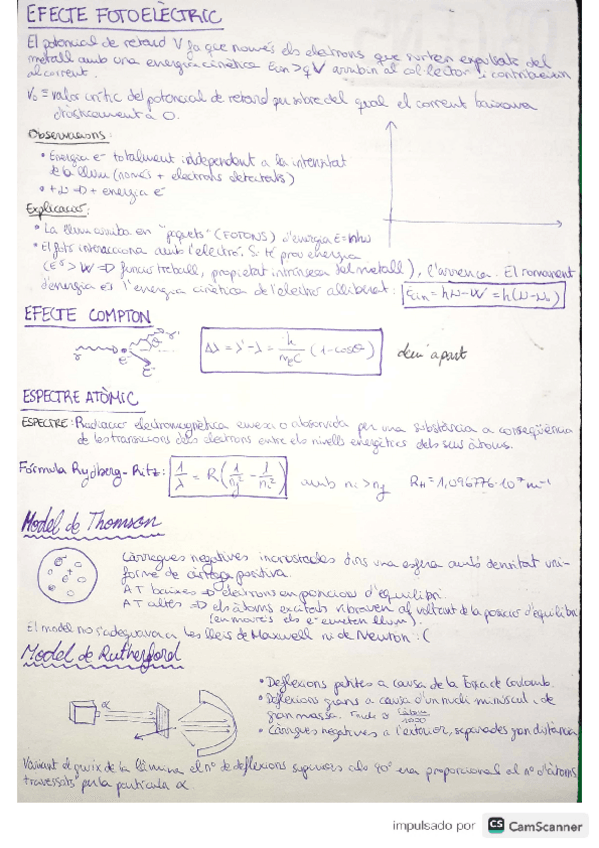 EFECTE FOTOELÈCTRIC
El potencial de retard V fa que només els electrons que surten expulsats del
metall amb una energia cinètica Ecin > qV arribin al col·lector i contribueixin
al corrent.
V₀ = valor crític del potencial de retard per sobre del qual el corrent baixava
dràsticament a 0.
Observacions:
• Energia e⁻ totalment independent a la intensitat
de la llum (només + electrons detectats)
• +ν ⇒ + energia e⁻
Explicació:
• La llum arriba en "paquets" (FOTONS) d'energia E=nhν
• El fotó interacciona amb l'electró. Si té prou energia
(E > W ⇒ funció treball, propietat intrínseca del metall), l'arrenca. El romanent
d'energia és l'energia cinètica de l'electró alliberat: Ecin = hν - W = h(ν-ν₀)
EFECTE COMPTON
γ γ' θ e⁻ e⁻
Δλ = λ' - λ = h/(mₑc) (1 - cosθ) dem. apart
ESPECTRE ATÒMIC
ESPECTRE: Radiació electromagnètica emesa o absorvida per una substància a conseqüència
de les transicions dels electrons entre els nivells energètics dels seus àtoms.
Fórmula Rydberg-Ritz: 1/λ = R(1/nj² - 1/ni²) amb ni > nj RH = 1,096776·10⁷ m⁻¹
Model de Thomson
Càrregues negatives incrustades dins una esfera amb densitat uni-
forme de càrrega positiva.
A T baixes ⇒ electrons en posició d'equilibri.
A T altes ⇒ els àtoms excitats vibraven al voltant de la posició d'equilibri
(en moure's els e⁻ emeten llum).
El model no s'adequava a les lleis de Maxwell ni de Newton :(
Model de Rutherford
α
• Deflexions petites a causa de la força de Coulomb.
• Deflexions grans a causa d'un nucli minúscul i de
gran massa.
• Càrregues negatives a l'exterior, separades gran distància
Variant el gruix de la làmina el nº de deflexions superiors als 90° era proporcional al nº d'àtoms
travessats per la partícula α
impulsado por CS CamScanner